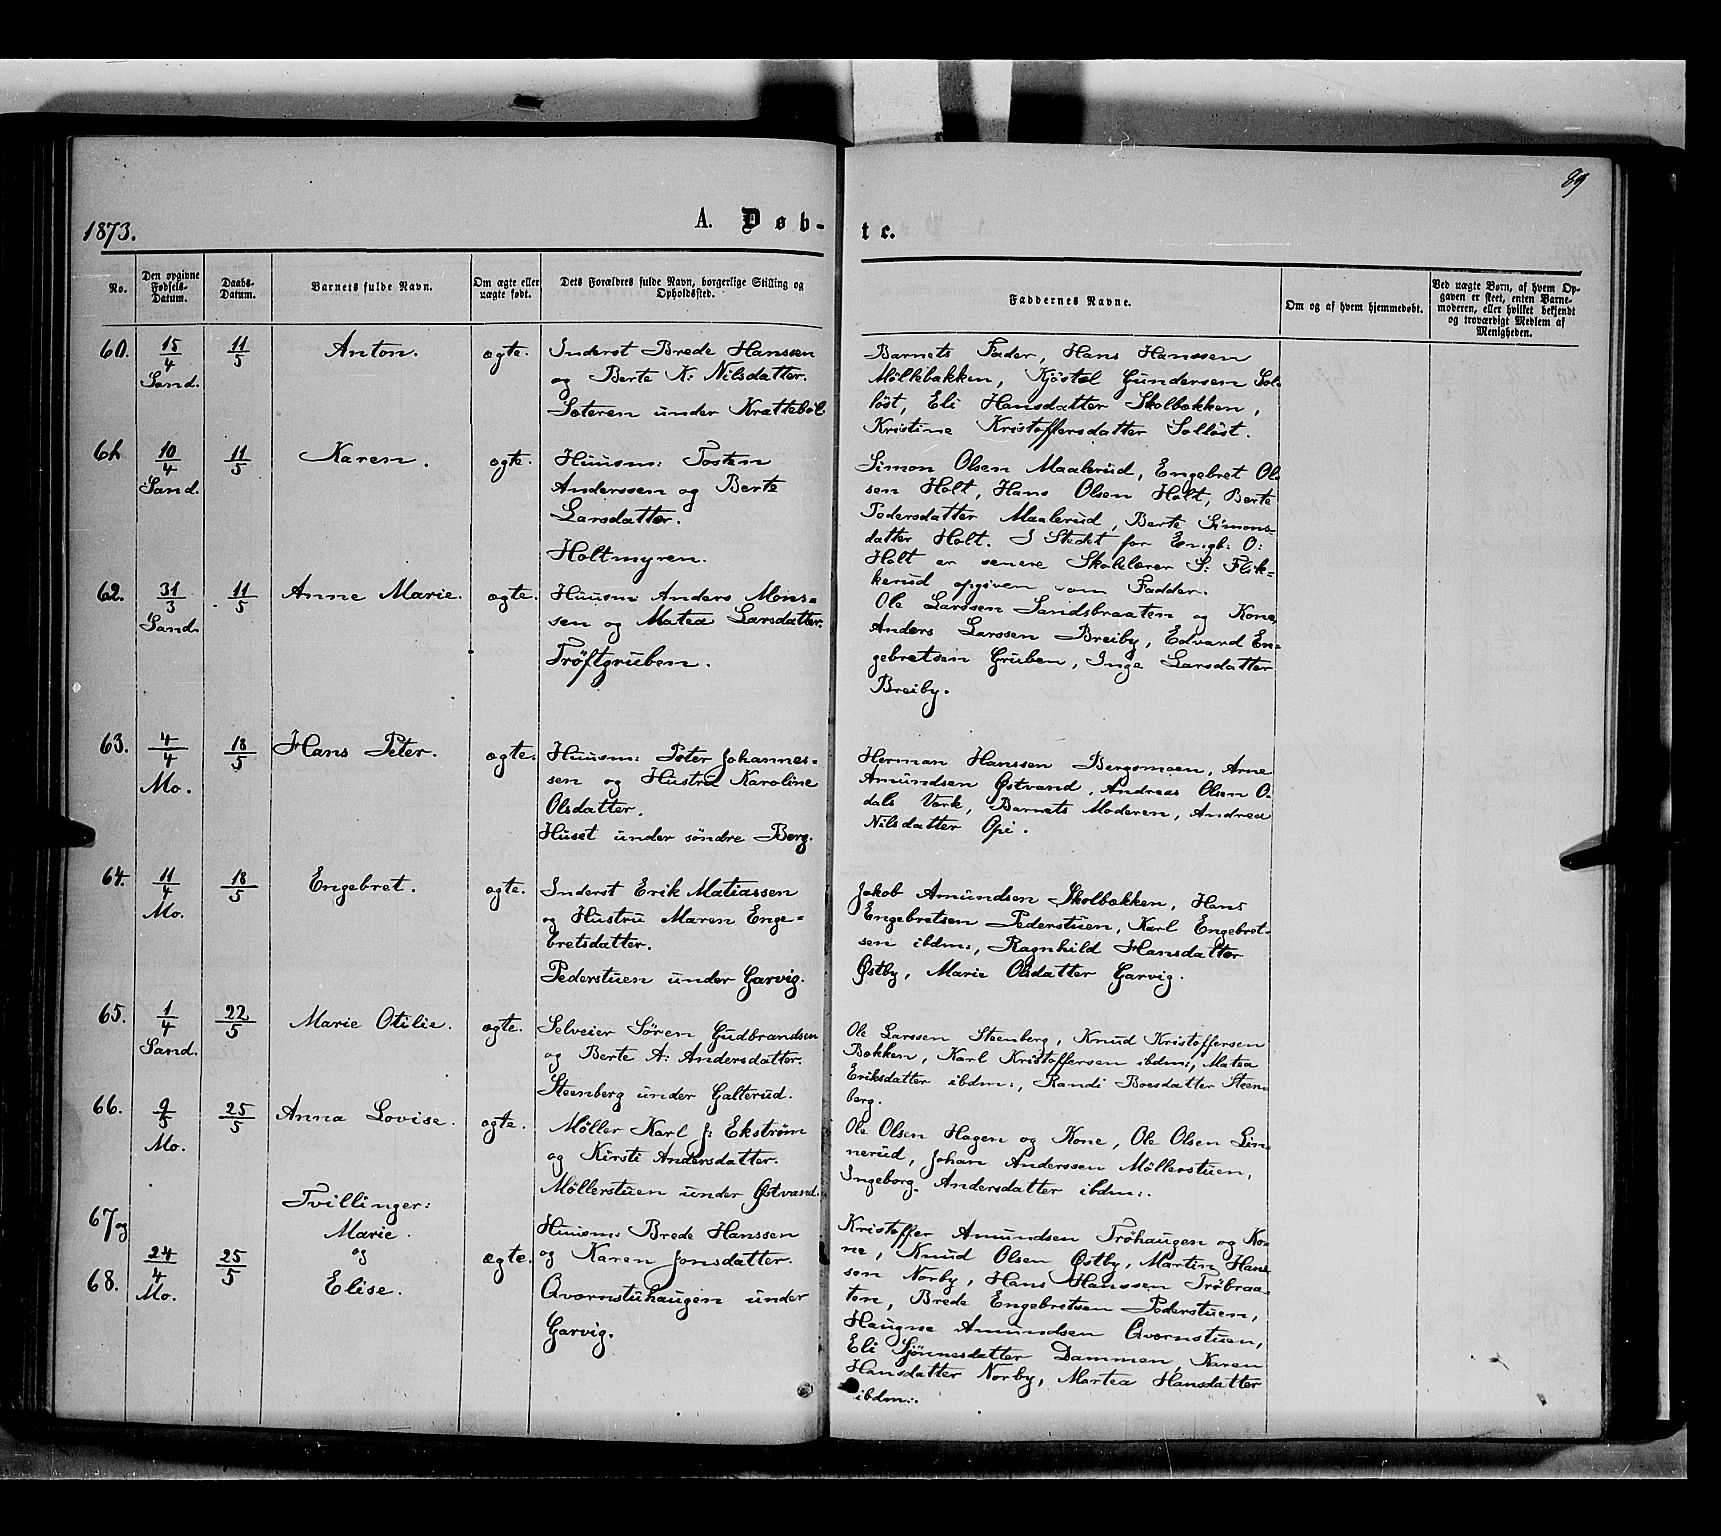 89
1873.
A. Døb-
te.
No.
Den opgivne Fødsels-Datum.
Daabs-Datum.
Barnets fulde Navn.
Om ægte eller uægte født.
Dets Forældres fulde Navn, borgerlige Stilling og Opholdssted.
Faddernes Navne.
Om og af hvem hjemmedøbt.
Ved uægte Børn, af hvem Opgaven er skeet, enten Barnemoderen, eller hvilket bekjendt og troværdigt Medlem af Menigheden.
60. 15/4 Sand. 11/5 Anton. ægte.
Inderst Brede Hanssen
og Berte K: Nilsdatter.
Sæteren under Krættebøl.
Barnets Fader, Hans Hanssen
Möllebakken, Kjöstel Gundersen Sol-
löst, Eli Hansdatter Skolbækken,
Kristine Kristoffersdatter Sollöst.
61. 10/4 Sand. 11/5 Karen. ægte.
Huusm: Tosten
Anderssen og Berte
Larsdatter.
Holtmyren.
Simon Olsen Maalerud, Engebret Ol-
sen Holt, Hans Olsen Holt, Berte
Pedersdatter Maalerud, Berte Simons-
datter Holt. I Stedet for Engb: O:
Holt er senere Skolelærer S: Flik-
kerud opgiven som Fadder.
62. 31/3 Sand. 11/5 Anne Marie. ægte.
Huusm: Anders Mons-
sen og Matea Larsdatter.
Tröftgruben.
Ole Larssen Sandsbraaten og Kone,
Anders Larssen Breiby, Edvard En-
gebretsen Gruben, Inge Larsdatter
Breiby.
63. 4/4 Mo. 18/5 Hans Peter. ægte.
Huusm: Peter Johannes-
sen og Hustru Karoline
Olsdatter.
Huset under söndre Berg.
Herman Hanssen Bergsmoen, Arne
Amundsen Østvand, Andreas Olsen O-
dals Værk, Barnets Moderen, Andrea
Nilsdatter Opi.
64. 11/4 Mo. 18/5 Engebret. ægte.
Inderst Erik Matiassen
og Hustru Maren Enge-
bretsdatter.
Pederstuen under Garvig.
Jakob Amundsen Skolbækken, Hans
Engebretsen Pederstuen, Karl Engebret-
sen ibdm:, Ragnhild Hansdatter
Østby, Marie Olsdatter Garvig.
65. 1/4 Sand. 22/5 Marie Otilie. ægte.
Selveier Sören Gudbrandsen
og Berte A: Andersdatter.
Steenberg under Galterud.
Ole Larssen Steenberg, Knud Kristoffersen
Bækken, Karl Kristoffersen ibdm:, Matea
Eriksdatter ibdm:, Randi Boesdatter Steen-
berg.
66. 9/5 Mo. 25/5 Anna Lovise. ægte.
Möller Karl J: Ekström
og Kirsti Andersdatter.
Möllerstuen under Østvand.
Ole Olsen Hagen og Kone, Ole Olsen Lin-
nerud, Johan Anderssen Möllerstuen,
Ingeborg Andersdatter ibdm:.
67 og 68. 24/4 Mo. 25/5 Tvillinger:
Marie.
og
Elise. ægte.
Huusm: Brede Hanssen
og Karen Jonsdatter.
Qværnstuhaugen under
Garvig.
Kristoffer Amundsen Tröhaugen og Ko-
ne, Knud Olsen Østby, Martin Hans-
sen Norby, Hans Hanssen Tröbraa-
ten, Brede Engebretsen Pederstuen,
Haagne Amundsen Qværnstuen,
Eli Sjönnesdatter Dammen, Karen
Hansdatter Norby, Martea Hansdatter
ibdm:.